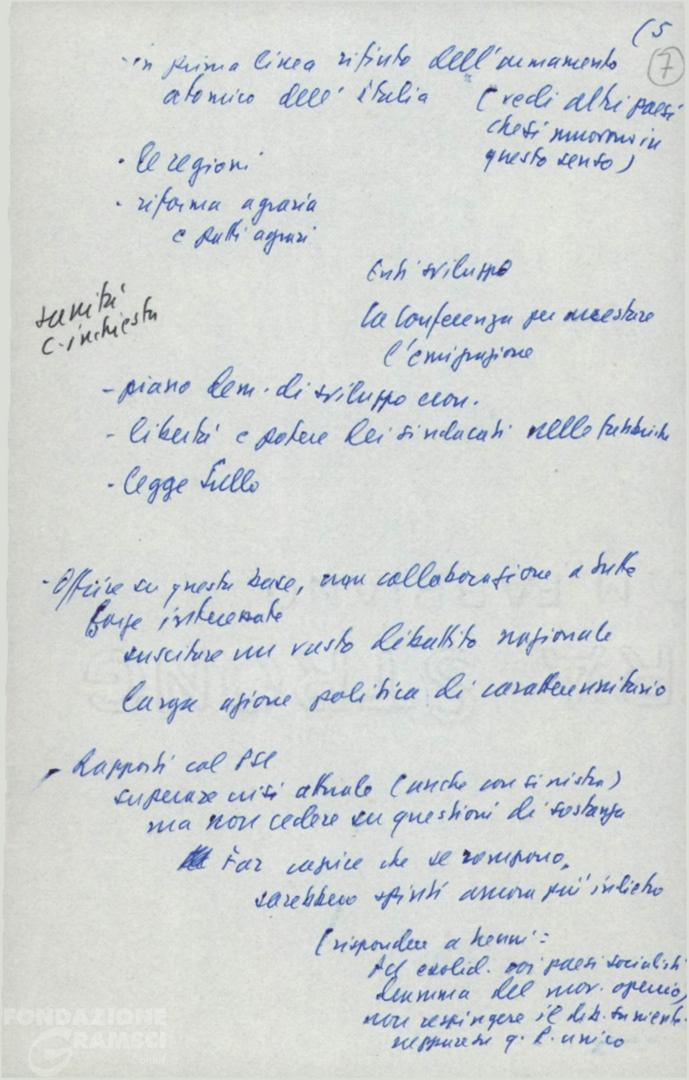 (5
7
- in prima linea rifiuto dell'armamento
atomico dell'italia (vedi altri paesi
che si muovono in
questo senso)
• le regioni
• riforma agraria
e patti agrari
Enti sviluppo
la Conferenza per arrestare
l'emigrazione
sanità
c. inchiesta
- piano dem. di sviluppo econ.
- libertà e potere dei sindacati nelle fabbriche
- legge Sullo
- Offrire su questa base, una collaborazione a tutte
forze interessate
suscitare un vasto dibattito nazionale
larga azione politica di carattere unitario
- Rapporti col PSI
superare crisi attuale (anche con sinistra)
ma non cedere su questioni di sostanza
Far capire che se rompono,
sarebbero spinti ancora più indietro
(rispondere a Nenni:
solid. coi paesi socialisti
dramma del mov. operaio,
non respingere il
neppure p. unico
FONDAZIONE
GRAMSCI